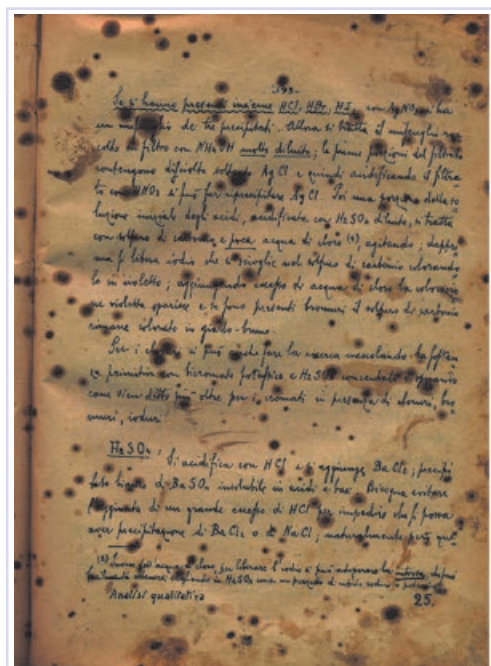 -193-
Se si hanno presenti insieme HCl, HBr, HI, con AgNO3 si ha
un miscuglio dei tre precipitati. Allora si tratta il miscuglio rac
colto su filtro con NH4OH molto diluito; le prime porzioni del filtrato
contengono disciolto soltanto AgCl e quindi acidificando il filtra-
to con HNO3 si può far riprecipitare AgCl. Poi una porzione della so
luzione iniziale degli acidi, acidificata con H2SO4 diluito, si tratta
con solfuro di carbonio e poca acqua di cloro (1), agitando; dappri
ma si libera iodio che si scioglie nel solfuro di carbonio colorando
lo in violetto; aggiungendo eccesso di acqua di cloro la colorazio
ne violetta sparisce e se sono presenti bromuri il solfuro di carbonio
rimane colorato in giallo-bruno.
Per i cloruri si può anche fare la ricerca mescolando la sostan
za primitiva con bicromato potassico e H2SO4 concentrato e operando
come vien detto più oltre per i cromati in presenza di cloruri, bro
muri, ioduri.
H2SO4. Si acidifica con HCl e si aggiunge BaCl2; precipi
tato bianco di BaSO4 insolubile in acidi e basi. Bisogna evitare
l'aggiunta di un grande eccesso di HCl per impedire che si possa
aver precipitazione di BaCl2 o di NaCl; naturalmente però qual
(1) Invece dell'acqua di cloro, per liberare l'iodio si può adoperare la
in H2SO4 un di nitrito sodico o potassico
Analisi qualitativa 25.